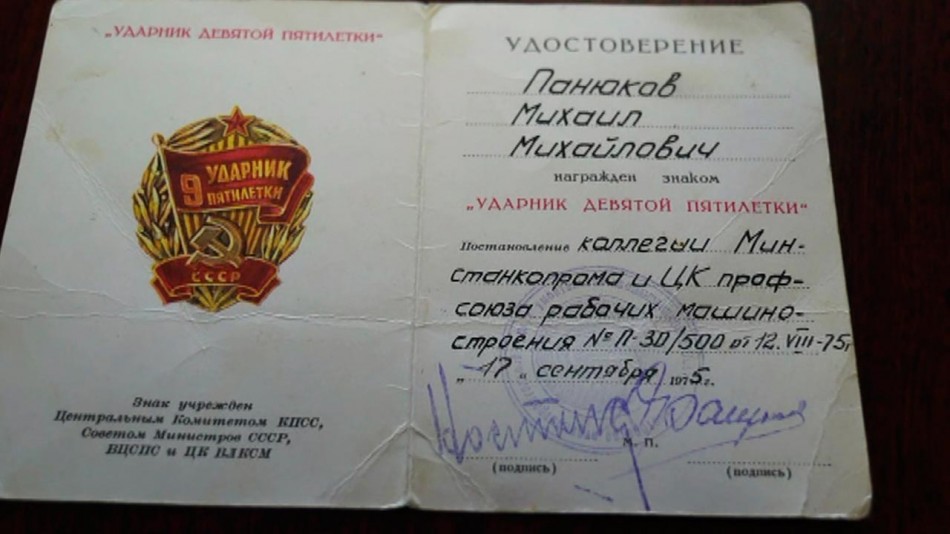 „УДАРНИК ДЕВЯТОЙ ПЯТИЛЕТКИ"
9 УДАРНИК
ПЯТИЛЕТКИ
СССР
Знак учрежден
Центральным Комитетом КПСС,
Советом Министров СССР,
ВЦСПС и ЦК ВЛКСМ
УДОСТОВЕРЕНИЕ
Панюков
Михаил
Михайлович
награжден знаком
„УДАРНИК ДЕВЯТОЙ ПЯТИЛЕТКИ"
Постановление коллегии Мин-
станкопрома и ЦК проф-
союза рабочих машино-
строения № П-30/500 от 12.VIII-75г
„17„ сентября 1975г.
М. П.
(подпись) (подпись)